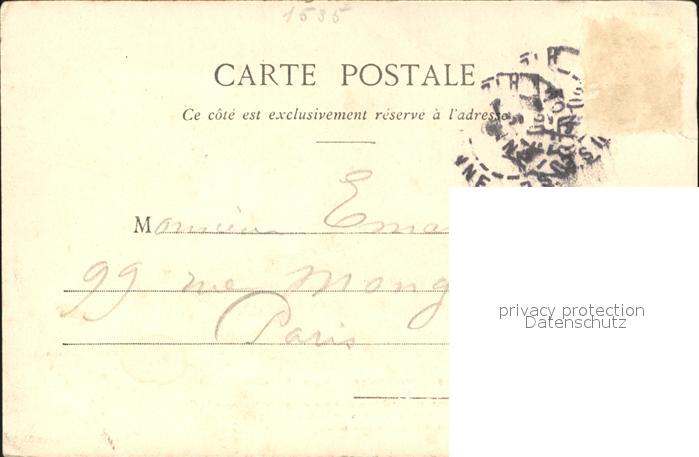 1535
CARTE POSTALE
Ce côté est exclusivement réservé à l'adresse
Monsieur Ema
99 rue Mong
Paris
privacy protection
Datenschutz